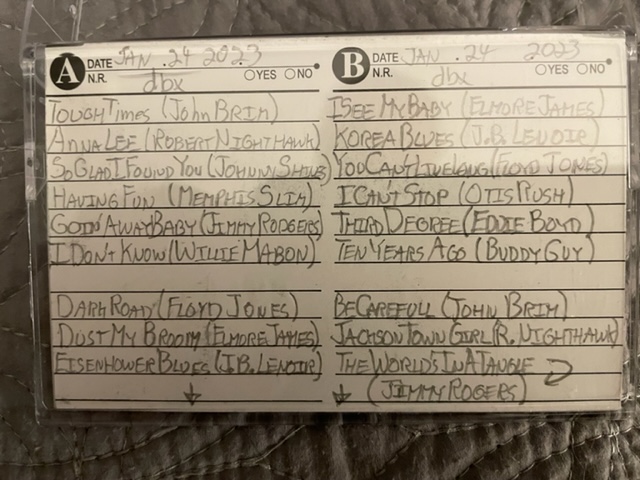 A DATE JAN. 24 2023
N.R. dbx OYES ONO
TOUGH TIMES (JOHN BRIM)
ANNA LEE (ROBERT NIGHTHAWK)
SO GLAD I FOUND YOU (JOHNNY SHINES)
HAVING FUN (MEMPHIS SLIM)
GOIN' AWAY BABY (JIMMY RODGERS)
I DON'T KNOW (WILLIE MABON)
DARK ROAD (FLOYD JONES)
DUST MY BROOM (ELMORE JAMES)
EISENHOWER BLUES (J.B. LENOIR)
B DATE JAN. 24 2023
N.R. dbx OYES ONO
I SEE MY BABY (ELMORE JAMES)
KOREA BLUES (J.B. LENOIR)
YOU CAN'T LIVE LONG (FLOYD JONES)
I CAN'T STOP (OTIS RUSH)
THIRD DEGREE (EDDIE BOYD)
TEN YEARS AGO (BUDDY GUY)
BE CAREFULL (JOHN BRIM)
JACKSON TOWN GIRL (R. NIGHTHAWK)
THE WORLD'S IN A TANGLE
(JIMMY ROGERS)